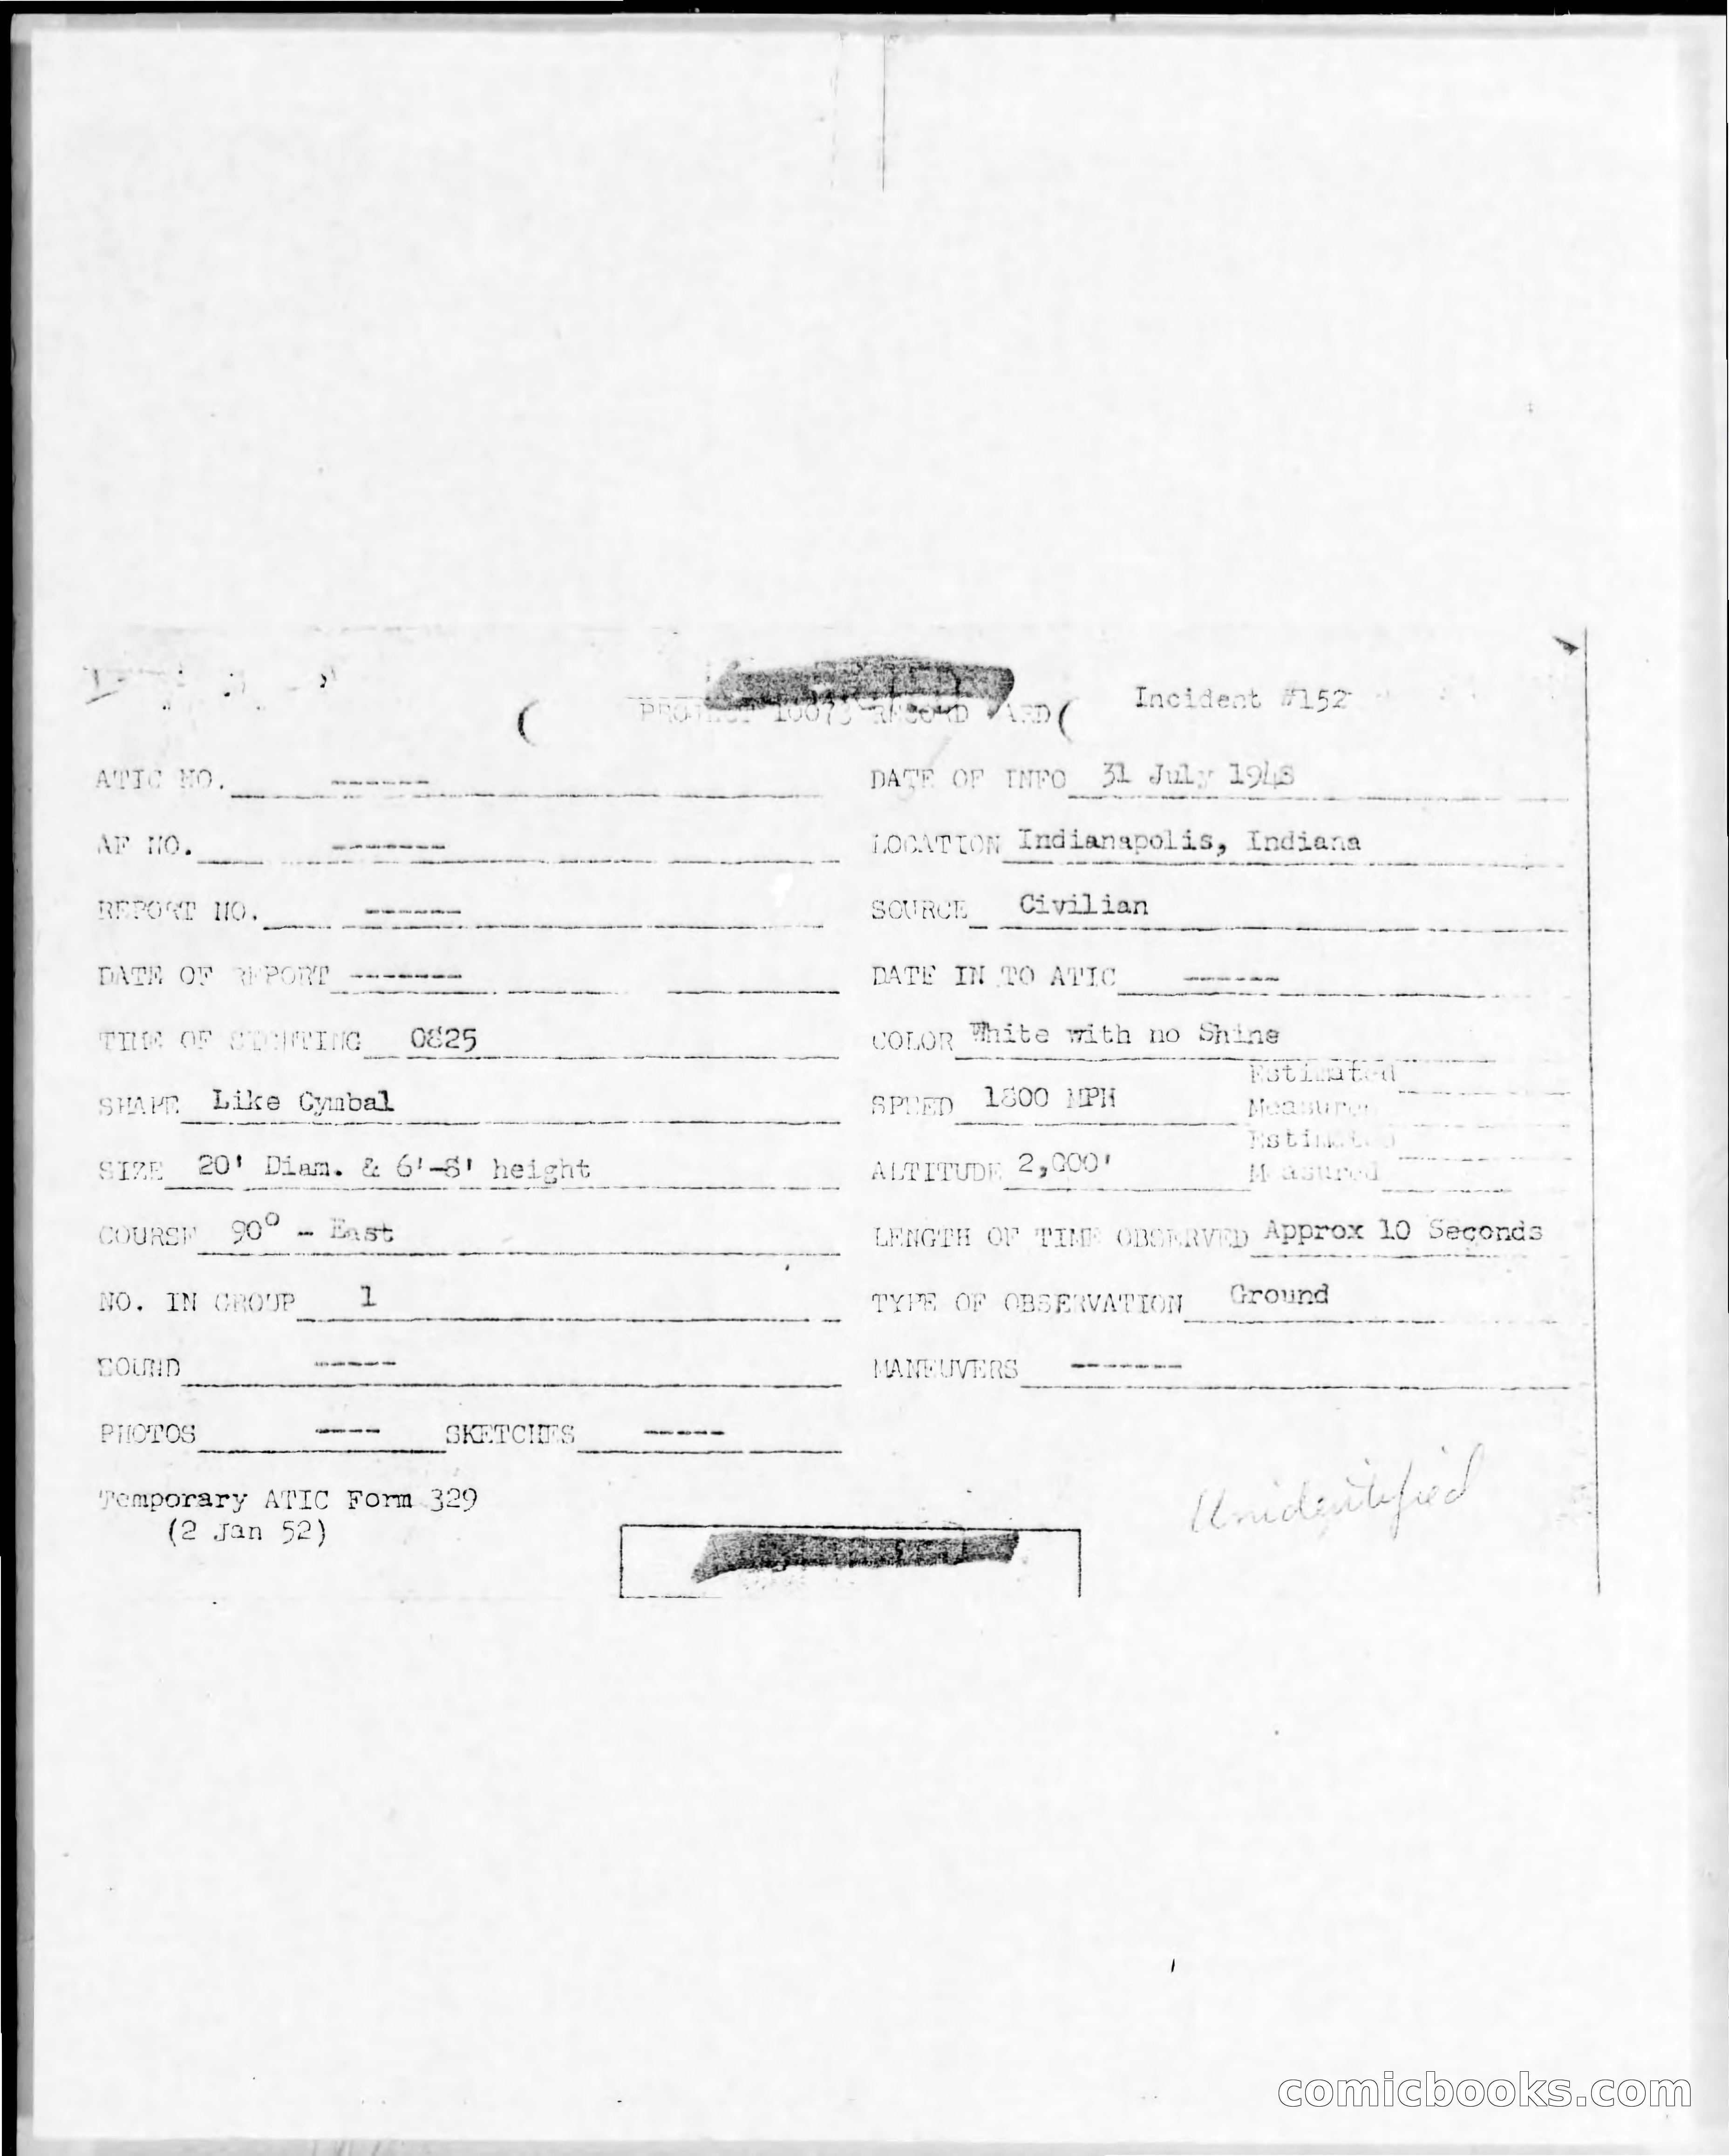 Incident #152
PROJECT 10073 RECORD CARD
ATIC NO. ------ DATE OF INFO 31 July 1948
AF NO. ------- LOCATION Indianapolis, Indiana
REPORT NO. ------ SOURCE Civilian
DATE OF REPORT ------- DATE IN TO ATIC ------
TIME OF SIGHTING 0825 COLOR White with no Shine
SHAPE Like Cymbal SPEED 1800 MPH Estimated
Measured
SIZE 20' Diam. & 6'-8' height ALTITUDE 2,000' Estimated
Measured
COURSE 90° - East LENGTH OF TIME OBSERVED Approx 10 Seconds
NO. IN GROUP 1 TYPE OF OBSERVATION Ground
SOUND ----- MANEUVERS -------
PHOTOS ---- SKETCHES -----
Temporary ATIC Form 329
(2 Jan 52)
Unidentified
comicbooks.com